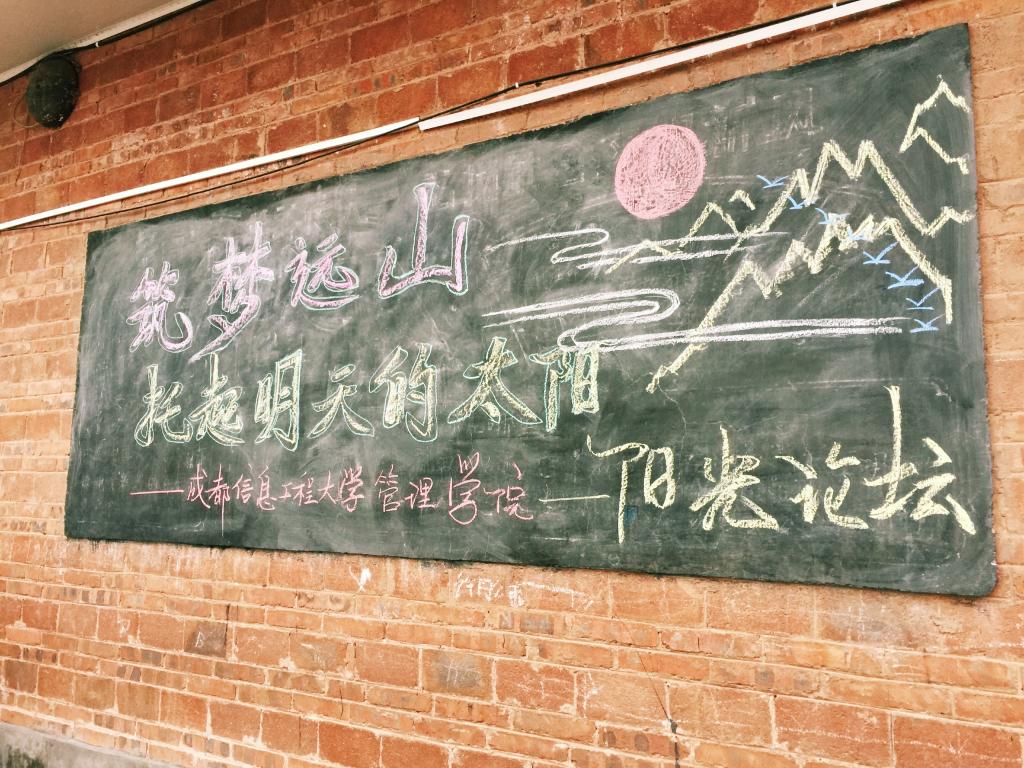 筑梦远山
托起明天的太阳
——成都信息工程大学管理学院—阳光论坛